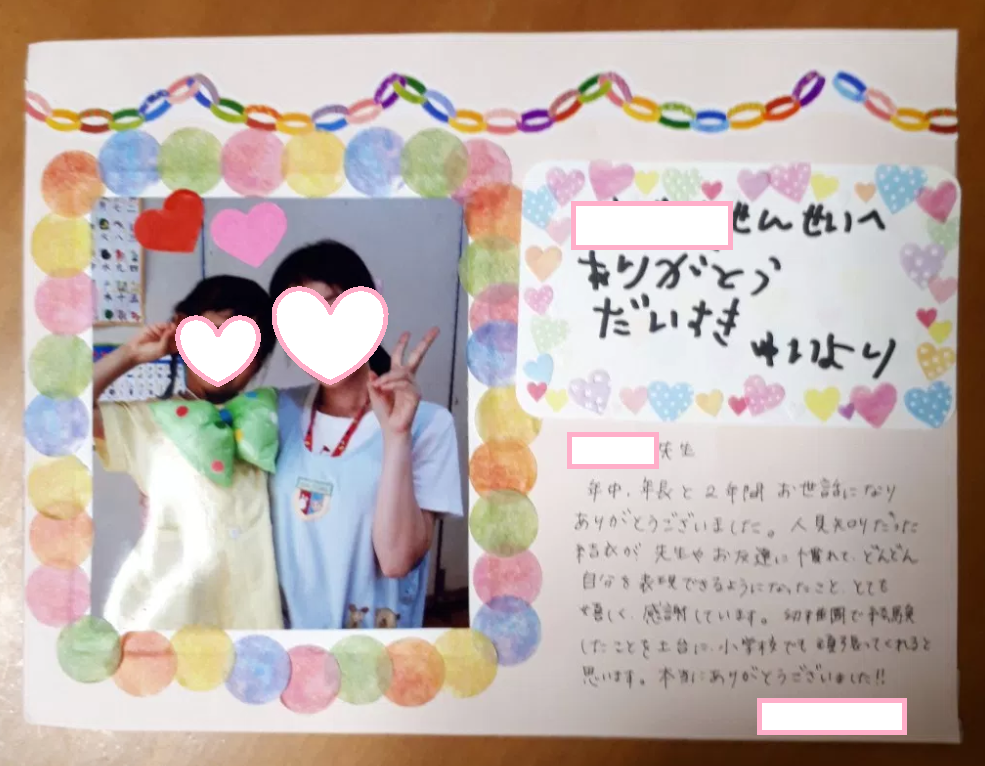 せんせいへ
ありがとう
だいすき
ゆいより
先生
年中、年長と2年間 お世話になり
ありがとうございました。人見知りだった
結衣が 先生や お友達に 慣れて、どんどん
自分を表現できるようになったこと、とても
嬉しく、感謝しています。幼稚園で経験
したことを土台に、小学校でも頑張ってくれると
思います。本当にありがとうございました!!